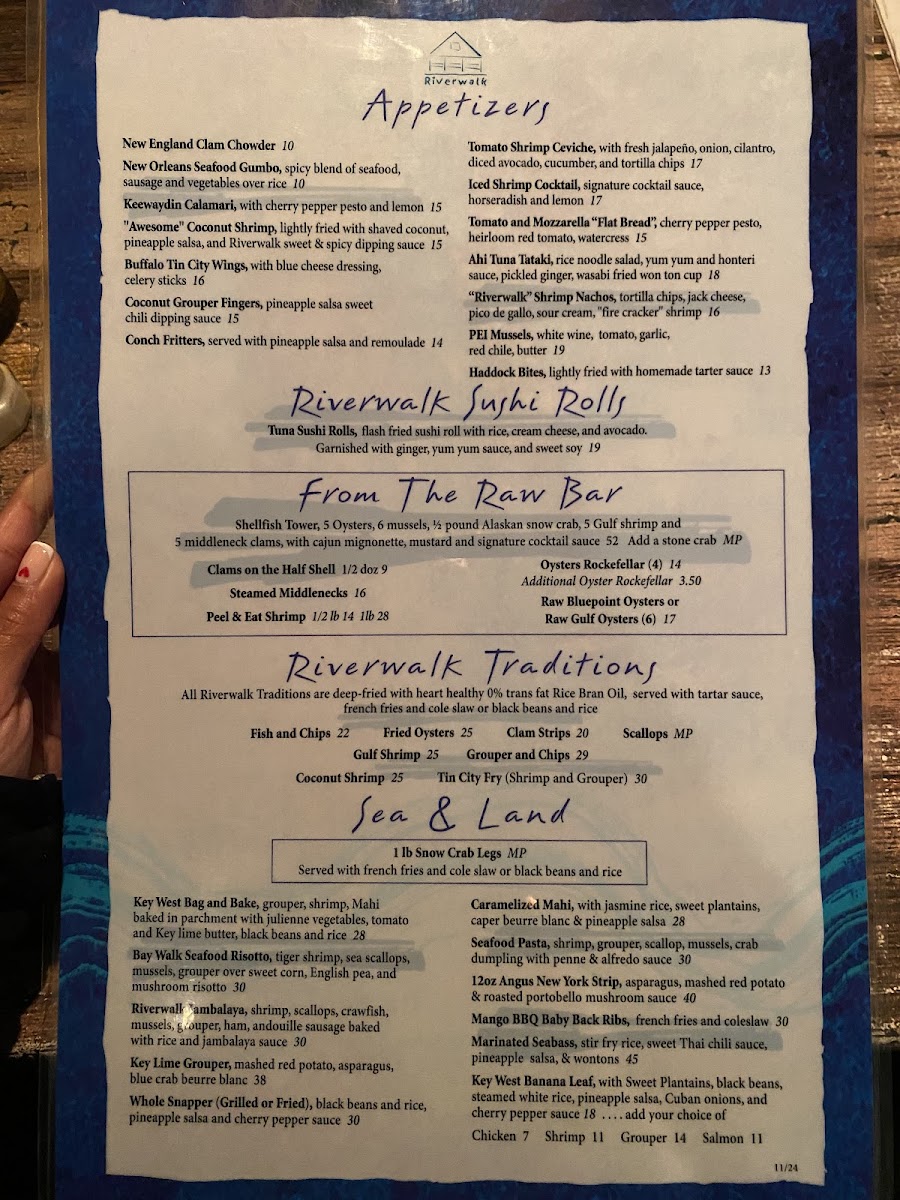 Riverwalk
Appetizers
New England Clam Chowder 10
New Orleans Seafood Gumbo, spicy blend of seafood,
sausage and vegetables over rice 10
Keewaydin Calamari, with cherry pepper pesto and lemon 15
"Awesome" Coconut Shrimp, lightly fried with shaved coconut,
pineapple salsa, and Riverwalk sweet & spicy dipping sauce 15
Buffalo Tin City Wings, with blue cheese dressing,
celery sticks 16
Coconut Grouper Fingers, pineapple salsa sweet
chili dipping sauce 15
Conch Fritters, served with pineapple salsa and remoulade 14
Tomato Shrimp Ceviche, with fresh jalapeño, onion, cilantro,
diced avocado, cucumber, and tortilla chips 17
Iced Shrimp Cocktail, signature cocktail sauce,
horseradish and lemon 17
Tomato and Mozzarella “Flat Bread”, cherry pepper pesto,
heirloom red tomato, watercress 15
Ahi Tuna Tataki, rice noodle salad, yum yum and honteri
sauce, pickled ginger, wasabi fried won ton cup 18
“Riverwalk” Shrimp Nachos, tortilla chips, jack cheese,
pico de gallo, sour cream, "fire cracker" shrimp 16
PEI Mussels, white wine, tomato, garlic,
red chile, butter 19
Haddock Bites, lightly fried with homemade tarter sauce 13
Riverwalk Sushi Rolls
Tuna Sushi Rolls, flash fried sushi roll with rice, cream cheese, and avocado.
Garnished with ginger, yum yum sauce, and sweet soy 19
From The Raw Bar
Shellfish Tower, 5 Oysters, 6 mussels, ½ pound Alaskan snow crab, 5 Gulf shrimp and
5 middleneck clams, with cajun mignonette, mustard and signature cocktail sauce 52 Add a stone crab MP
Clams on the Half Shell 1/2 doz 9
Steamed Middlenecks 16
Peel & Eat Shrimp 1/2 lb 14 1lb 28
Oysters Rockefellar (4) 14
Additional Oyster Rockefellar 3.50
Raw Bluepoint Oysters or
Raw Gulf Oysters (6) 17
Riverwalk Traditions
All Riverwalk Traditions are deep-fried with heart healthy 0% trans fat Rice Bran Oil, served with tartar sauce,
french fries and cole slaw or black beans and rice
Fish and Chips 22 Fried Oysters 25 Clam Strips 20 Scallops MP
Gulf Shrimp 25 Grouper and Chips 29
Coconut Shrimp 25 Tin City Fry (Shrimp and Grouper) 30
Sea & Land
1 lb Snow Crab Legs MP
Served with french fries and cole slaw or black beans and rice
Key West Bag and Bake, grouper, shrimp, Mahi
baked in parchment with julienne vegetables, tomato
and Key lime butter, black beans and rice 28
Bay Walk Seafood Risotto, tiger shrimp, sea scallops,
mussels, grouper over sweet corn, English pea, and
mushroom risotto 30
Riverwalk Jambalaya, shrimp, scallops, crawfish,
mussels, grouper, ham, andouille sausage baked
with rice and jambalaya sauce 30
Key Lime Grouper, mashed red potato, asparagus,
blue crab beurre blanc 38
Whole Snapper (Grilled or Fried), black beans and rice,
pineapple salsa and cherry pepper sauce 30
Caramelized Mahi, with jasmine rice, sweet plantains,
caper beurre blanc & pineapple salsa 28
Seafood Pasta, shrimp, grouper, scallop, mussels, crab
dumpling with penne & alfredo sauce 30
12oz Angus New York Strip, asparagus, mashed red potato
& roasted portobello mushroom sauce 40
Mango BBQ Baby Back Ribs, french fries and coleslaw 30
Marinated Seabass, stir fry rice, sweet Thai chili sauce,
pineapple salsa, & wontons 45
Key West Banana Leaf, with Sweet Plantains, black beans,
steamed white rice, pineapple salsa, Cuban onions, and
cherry pepper sauce 18 ....add your choice of
Chicken 7 Shrimp 11 Grouper 14 Salmon 11
11/24